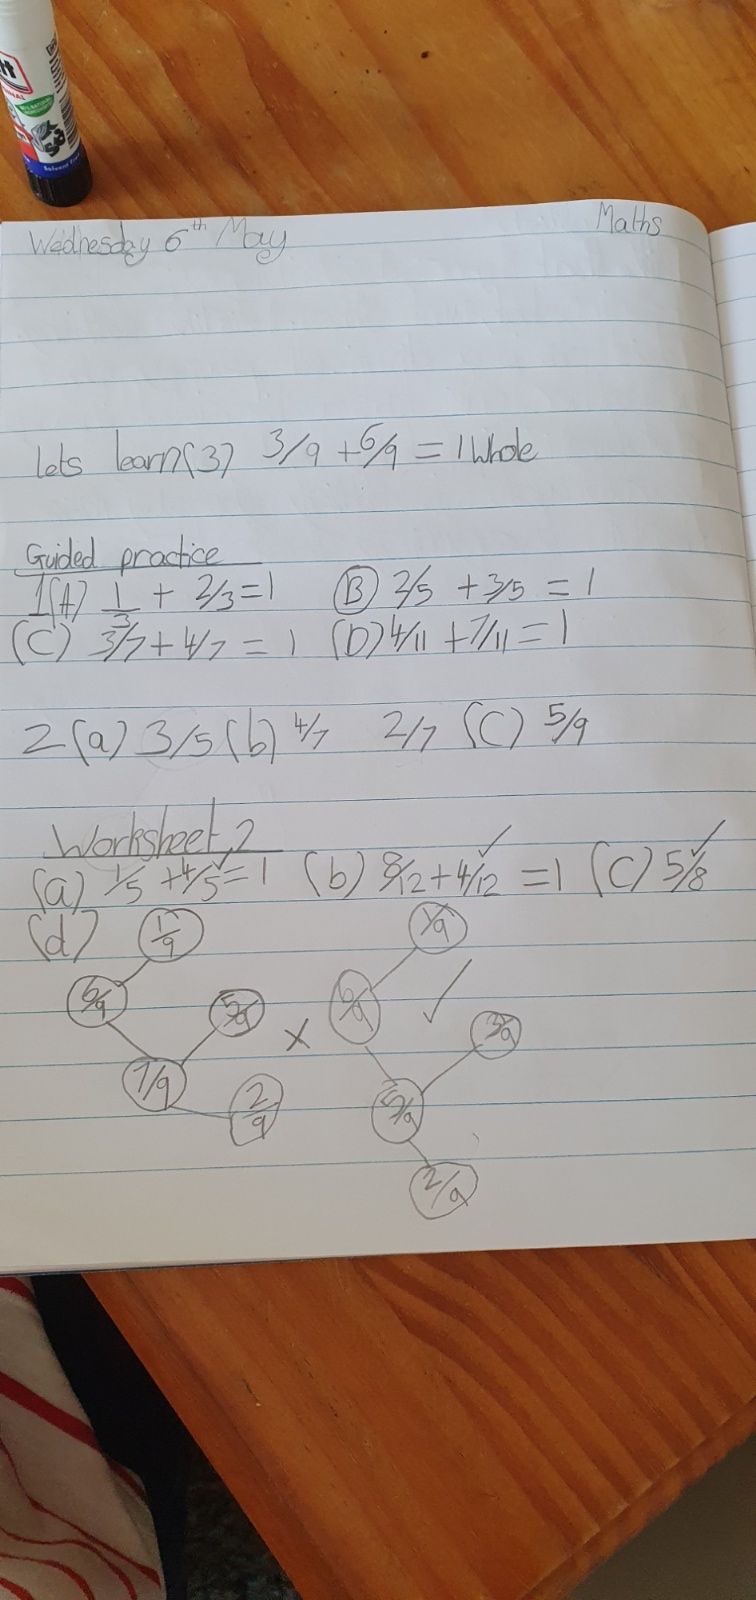 Wednesday 6th May
Maths
lets learn(3) 3/9 + 6/9 = 1 Whole
Guided practice
1(A) 1/3 + 2/3 = 1 (B) 2/5 + 3/5 = 1
(C) 3/7 + 4/7 = 1 (D) 4/11 + 7/11 = 1
2 (a) 3/5 (b) 4/7 2/7 (C) 5/9
Worksheet 2
(a) 1/5 + 4/5 = 1 ✓ (b) 8/12 + 4/12 = 1 ✓ (C) 5/8 ✓
(d) 1/9 1/9
6/9 5/9 × 6/9 ✓ 3/9
7/9 2/9 5/9
2/9